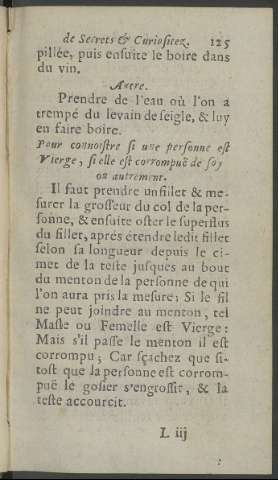 de Secrets & Curiositez. 125
pillée, puis ensuite le boire dans
du vin.
Autre.
Prendre de l'eau où l'on a
trempé du levain de seigle, & luy
en faire boire.
Pour connoistre si une personne est
Vierge, si elle est corrompuë de soy
ou autrement.
Il faut prendre un fillet & me-
surer la grosseur du col de la per-
sonne, & ensuite oster le superflus
du fillet, aprés étendre ledit fillet
selon sa longueur depuis le ci-
met de la teste jusques au bout
du menton de la personne de qui
l'on aura pris la mesure; Si le fil
ne peut joindre au menton, tel
Masle ou Femelle est Vierge:
Mais s'il passe le menton il est
corrompu; Car sçachez que si-
tost que la personne est corrom-
puë le gosier s'engrossit, & la
teste accourcit.
L iij